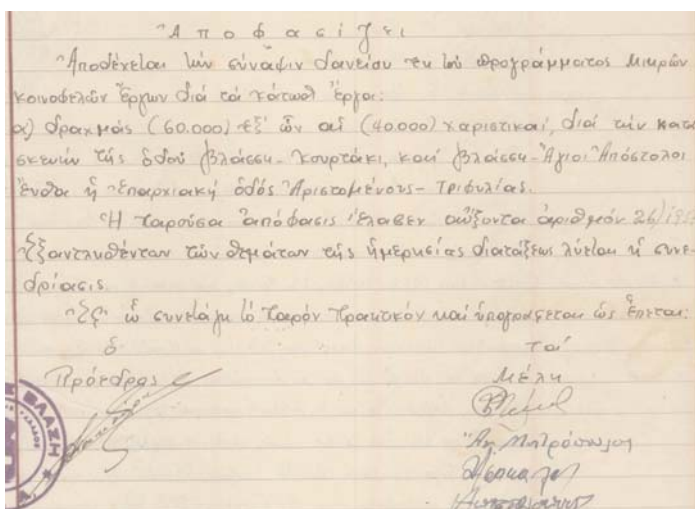 Ἀποφασίζει
Ἀποδέχεται τὴν σύναψιν δανείου ἐκ τοῦ προγράμματος μικρῶν
κοινοφελῶν ἔργων διά τά κάτωθι ἔργα:
α) δραχμάς (60.000) ἐξ' ὧν αἱ (40.000) χαριστικαί, διά τήν κατα
σκευήν τῆς ὁδοῦ Βλάσση - Κουρτάκι, καί Βλάσση - Ἅγιοι Ἀπόστολοι
ἔνθα ἡ Ἐπαρχιακή ὁδός Ἀριστομένους - Τριφυλίας.
Ἡ παροῦσα ἀπόφασις ἔλαβεν αὔξοντα ἀριθμόν 26/
Ἐξαντληθέντων τῶν θεμάτων τῆς ἡμερησίας διατάξεως λύεται ἡ συνε-
δρίασις.
Ἐφ' ὧ συνετάγη τό παρόν πρακτικόν καί ὑπογράφεται ὡς ἕπεται:
ὁ Τά
Πρόεδρος Μέλη
Μητρόπουλος
ΒΛΑΣΗ